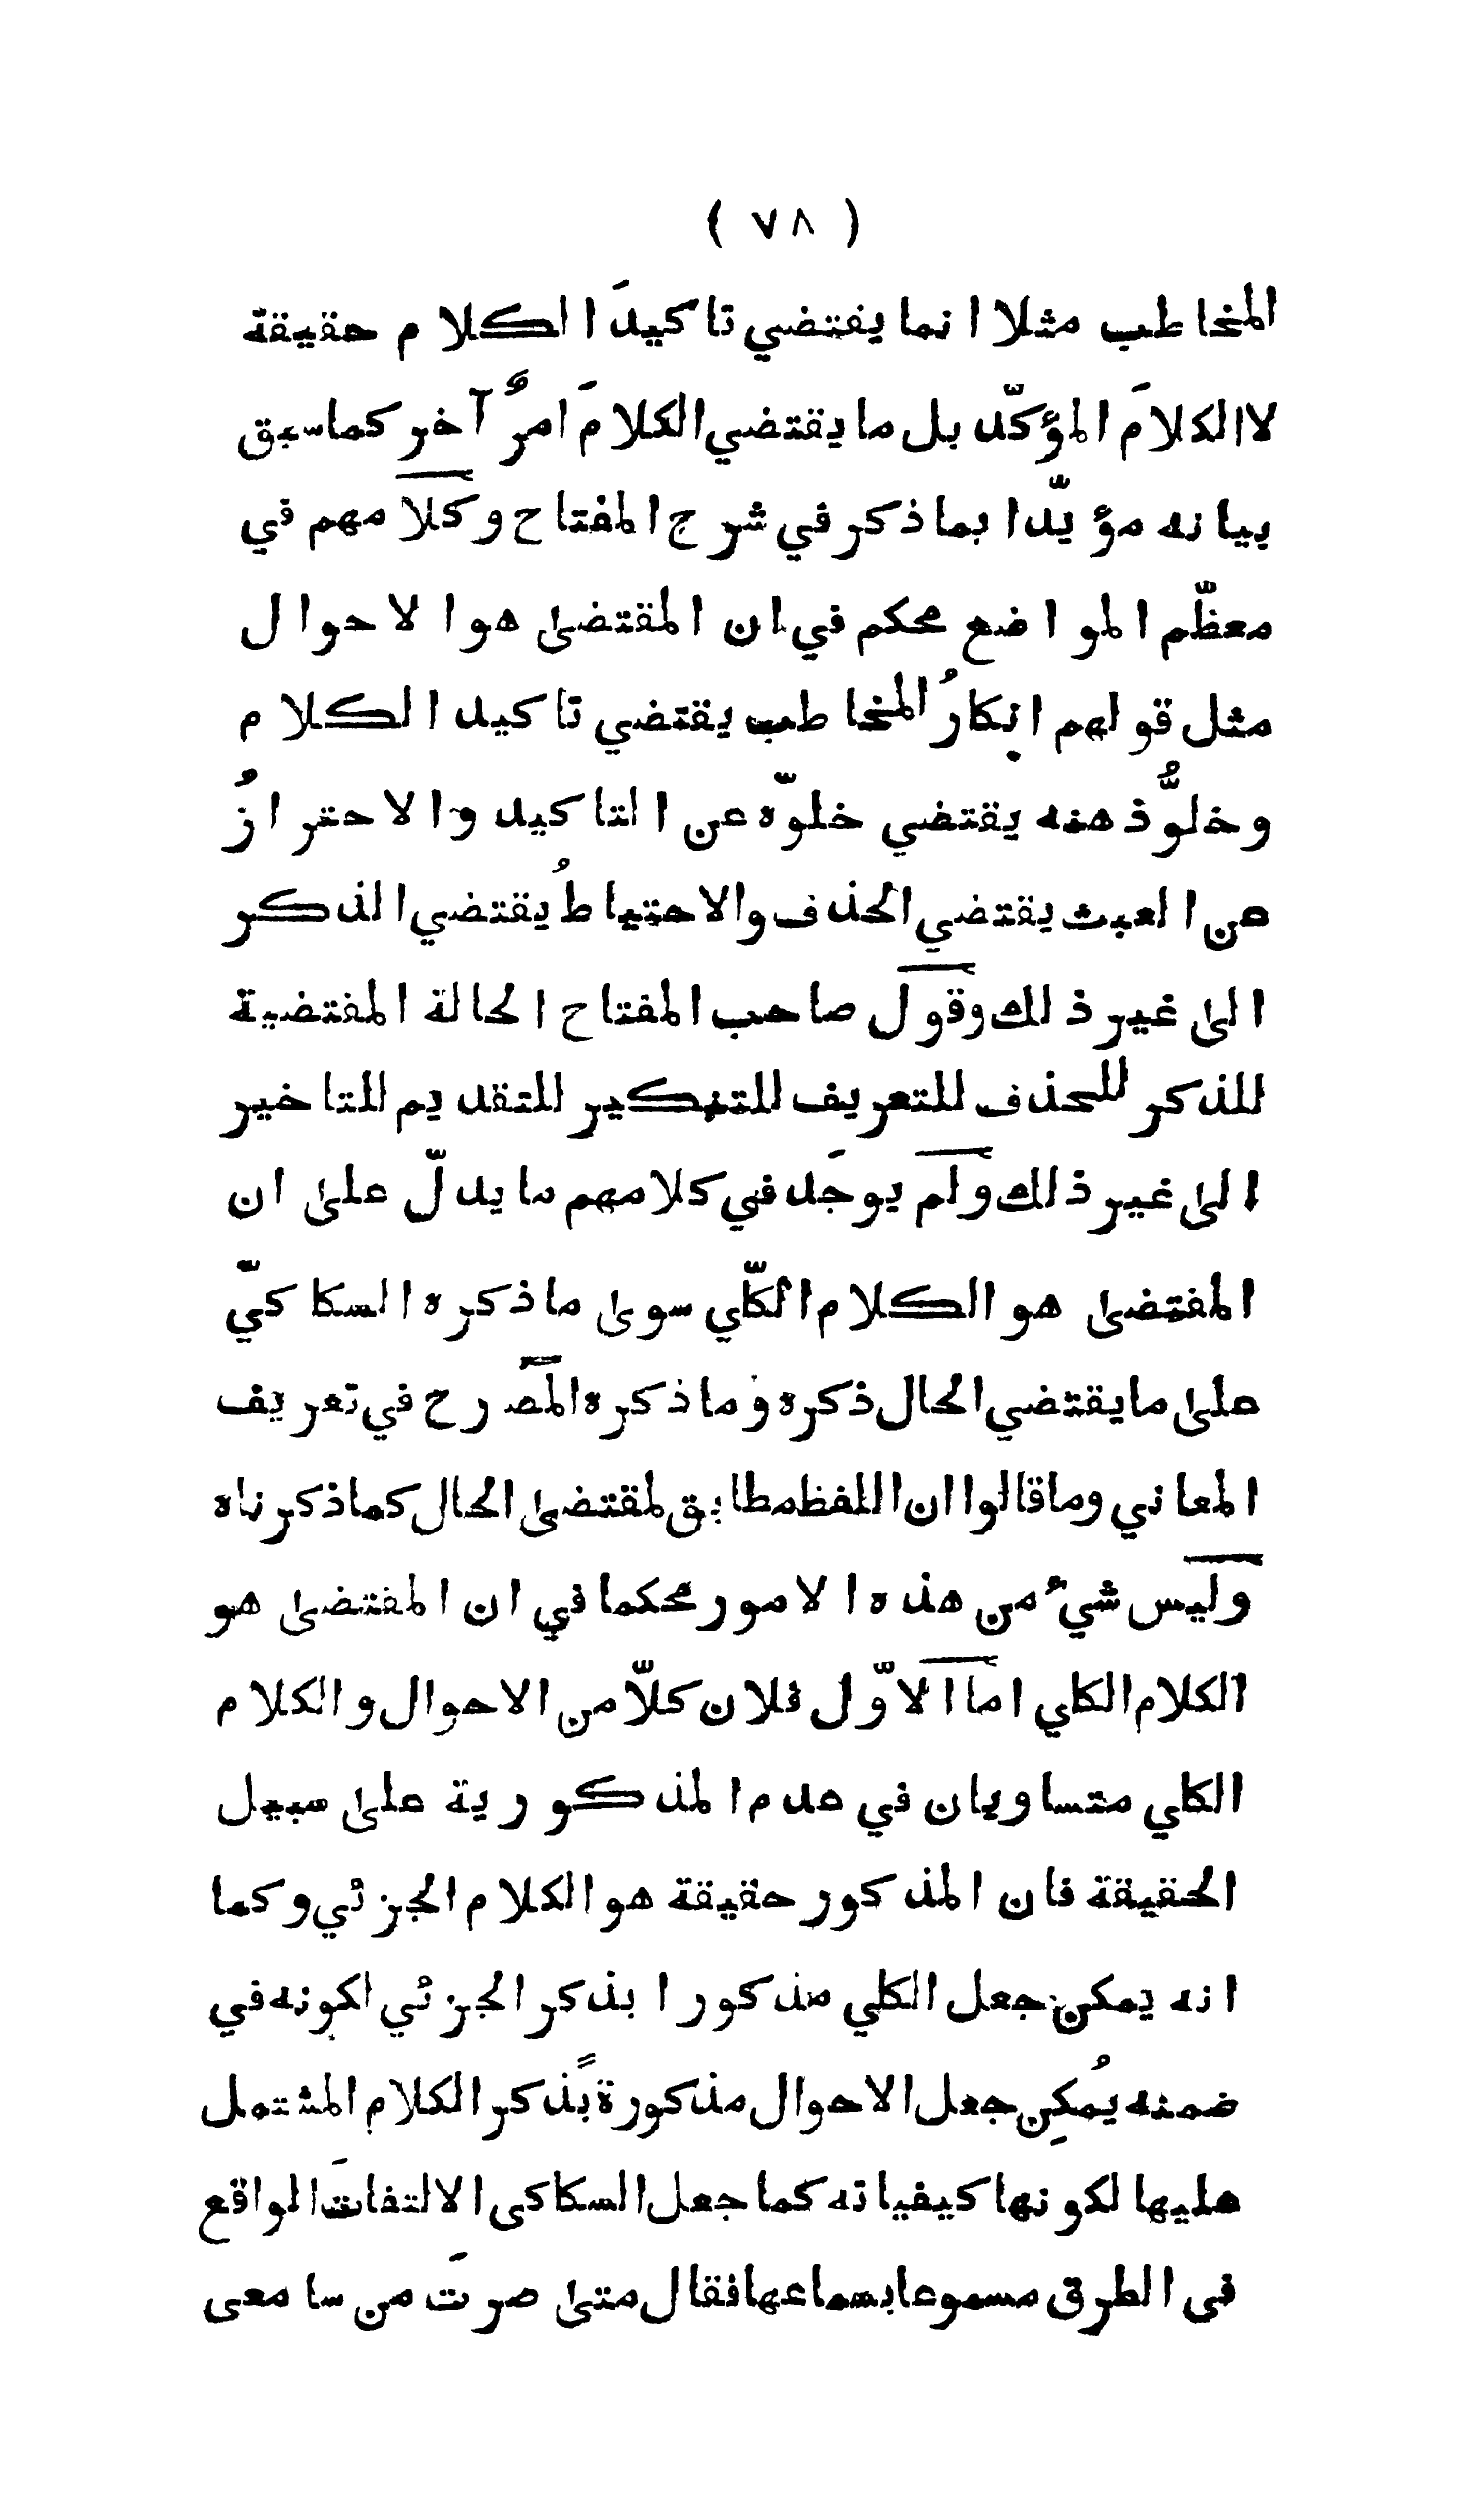 ( ٧٨ )
المخاطب مثلا انما يقتضي تاكيدَ الكلام حقيقة
لا الكلامَ المؤكّد بل ما يقتضي الكلامَ امرٌ آخر كما سبق
بيانه مؤيّدا بما ذكر في شرح المفتاح وكلامهم في
معظّم المواضع محكم في ان المقتضىٰ هو الاحوال
مثل قولهم انكارُ المخاطب يقتضي تاكيد الكلام
وخلوُّ ذهنه يقتضي خلوّه عن التاكيد والاحترازُ
عن العبث يقتضي الحذف والاحتياطُ يقتضي الذكر
الىٰ غير ذلك وقول صاحب المفتاح الحالة المقتضية
للذكر للحذف للتعريف للتنكير للتقديم للتاخير
الىٰ غير ذلك ولم يوجَد في كلامهم ما يدلّ علىٰ ان
المقتضىٰ هو الكلام الكلّي سوىٰ ما ذكره السكاكيّ
علىٰ ما يقتضي الحال ذكره وما ذكره المصرح في تعريف
المعاني وما قالوا ان اللفظ مطابق لمقتضىٰ الحال كما ذكرناه
وليس شيء من هذه الامور محكما في ان المقتضىٰ هو
الكلام الكلي اما الاوّل فلان كلّا من الاحوال والكلام
الكلي متساويان في عدم المذكورية علىٰ سبيل
الحقيقة فان المذكور حقيقة هو الكلام الجزئي وكما
انه يمكن جعل الكلي مذكورا بذكر الجزئي لكونه في
ضمنه يُمكِن جعل الاحوال مذكورةً بذكر الكلام المشتمل
عليها لكونها كيفياته كما جعل السكاكى الالتفاتَ الواقع
فى الطرق مسموعا بسماعها فقال متىٰ صرتَ من سامعى